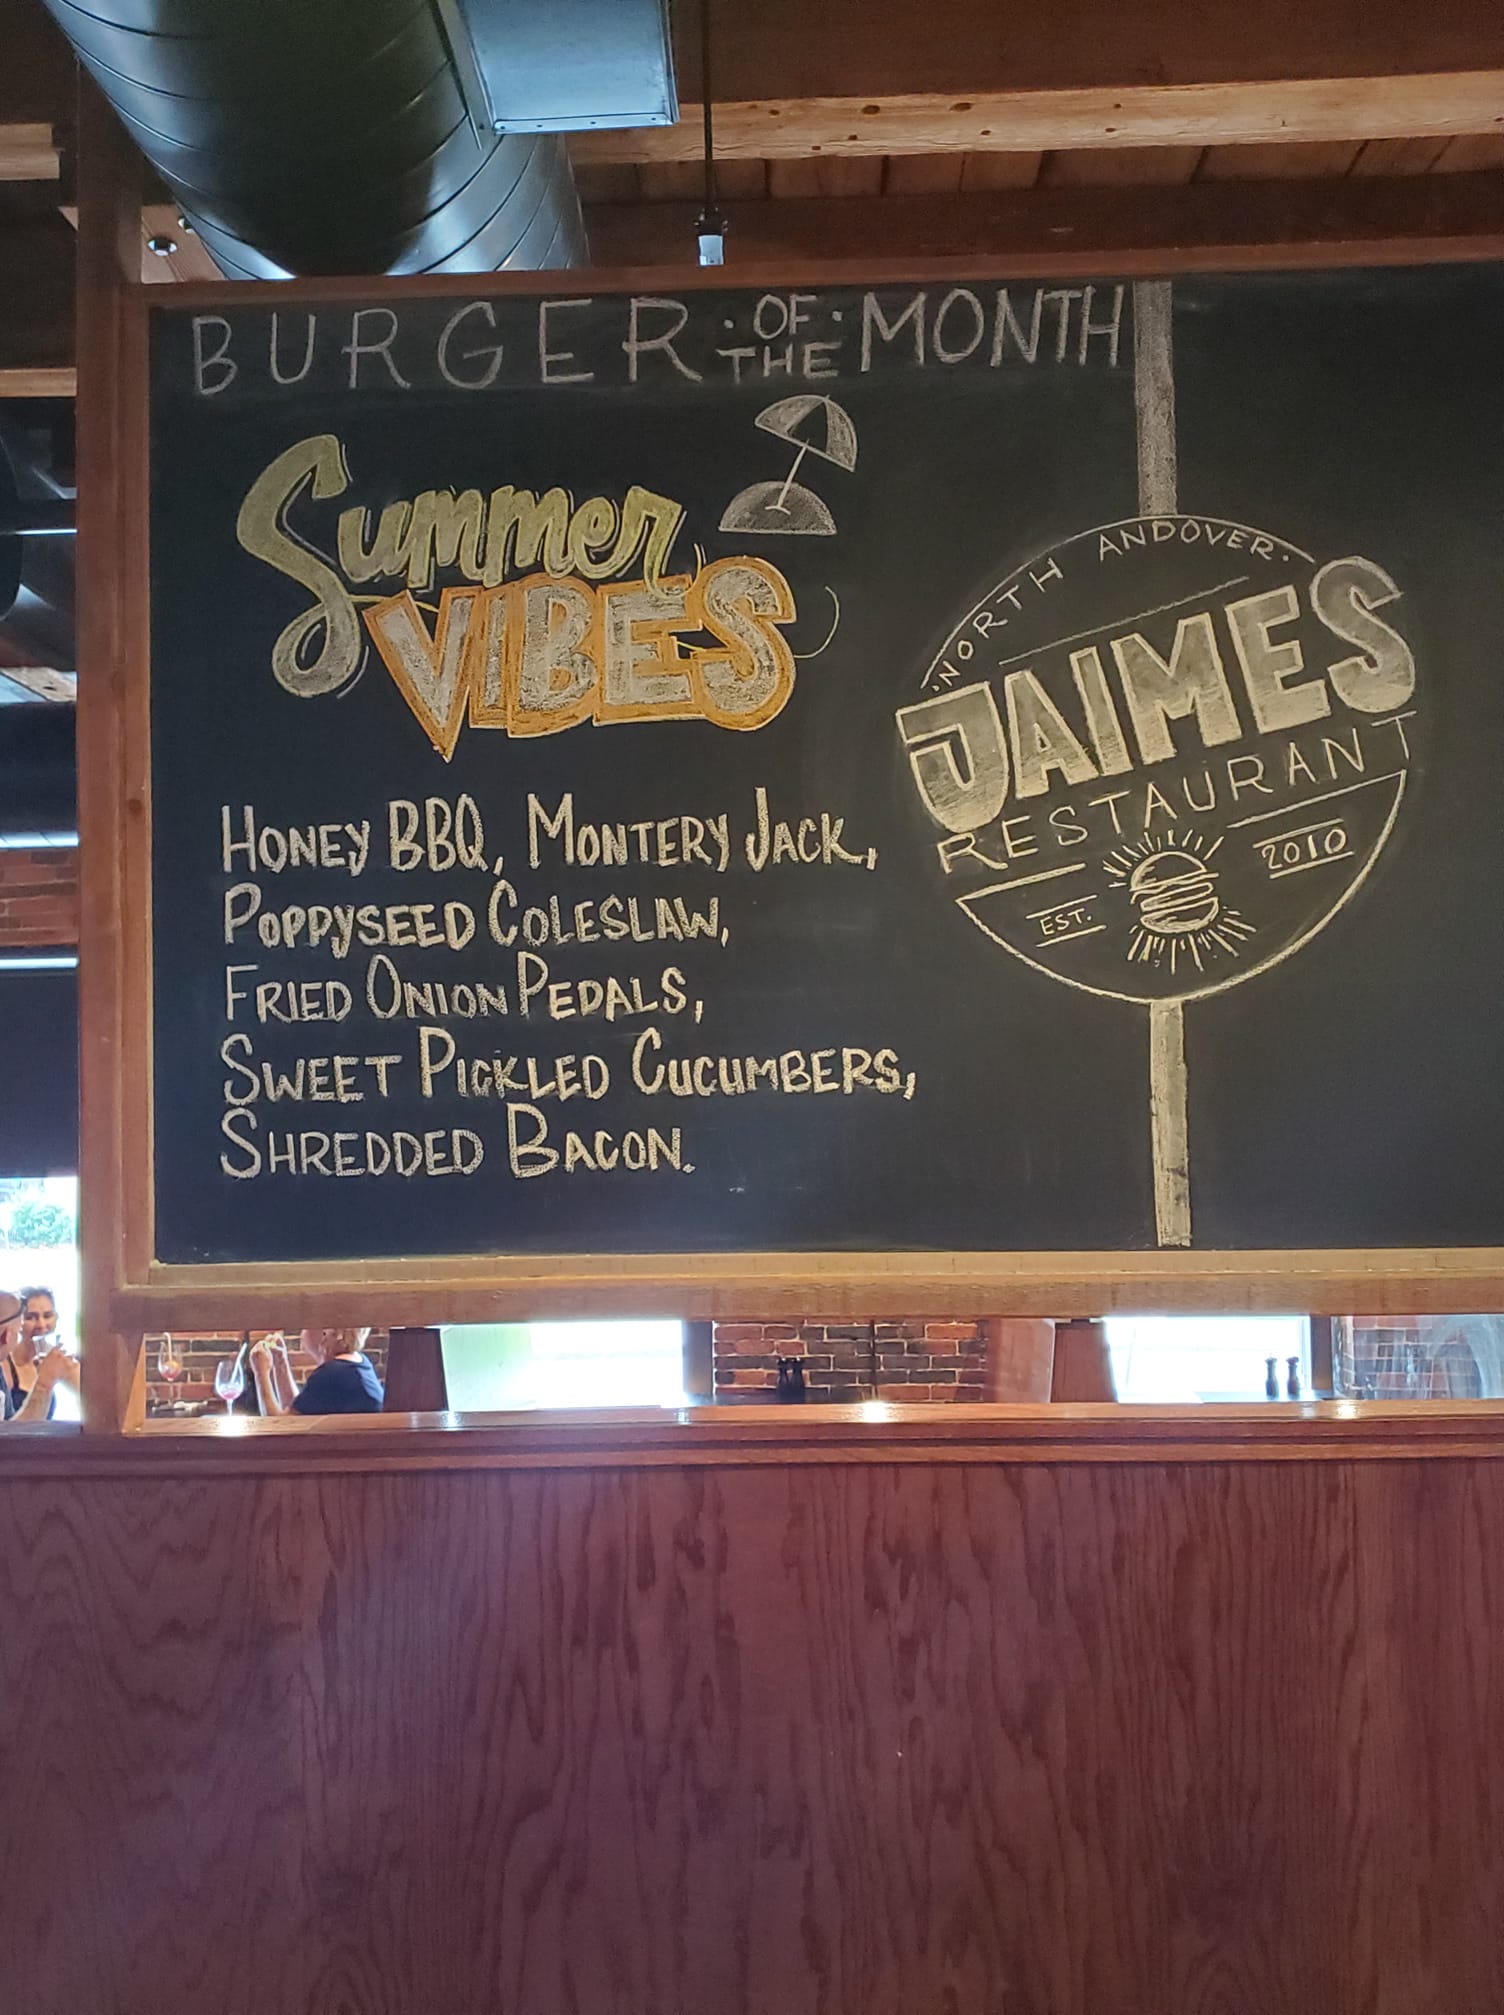 BURGER · OF · THE MONTH
Summer
VIBES
HONEY BBQ, MONTERY JACK,
POPPYSEED COLESLAW,
FRIED ONION PEDALS,
SWEET PICKLED CUCUMBERS,
SHREDDED BACON.
· NORTH ANDOVER ·
JAIMES
RESTAURANT
EST. 2010